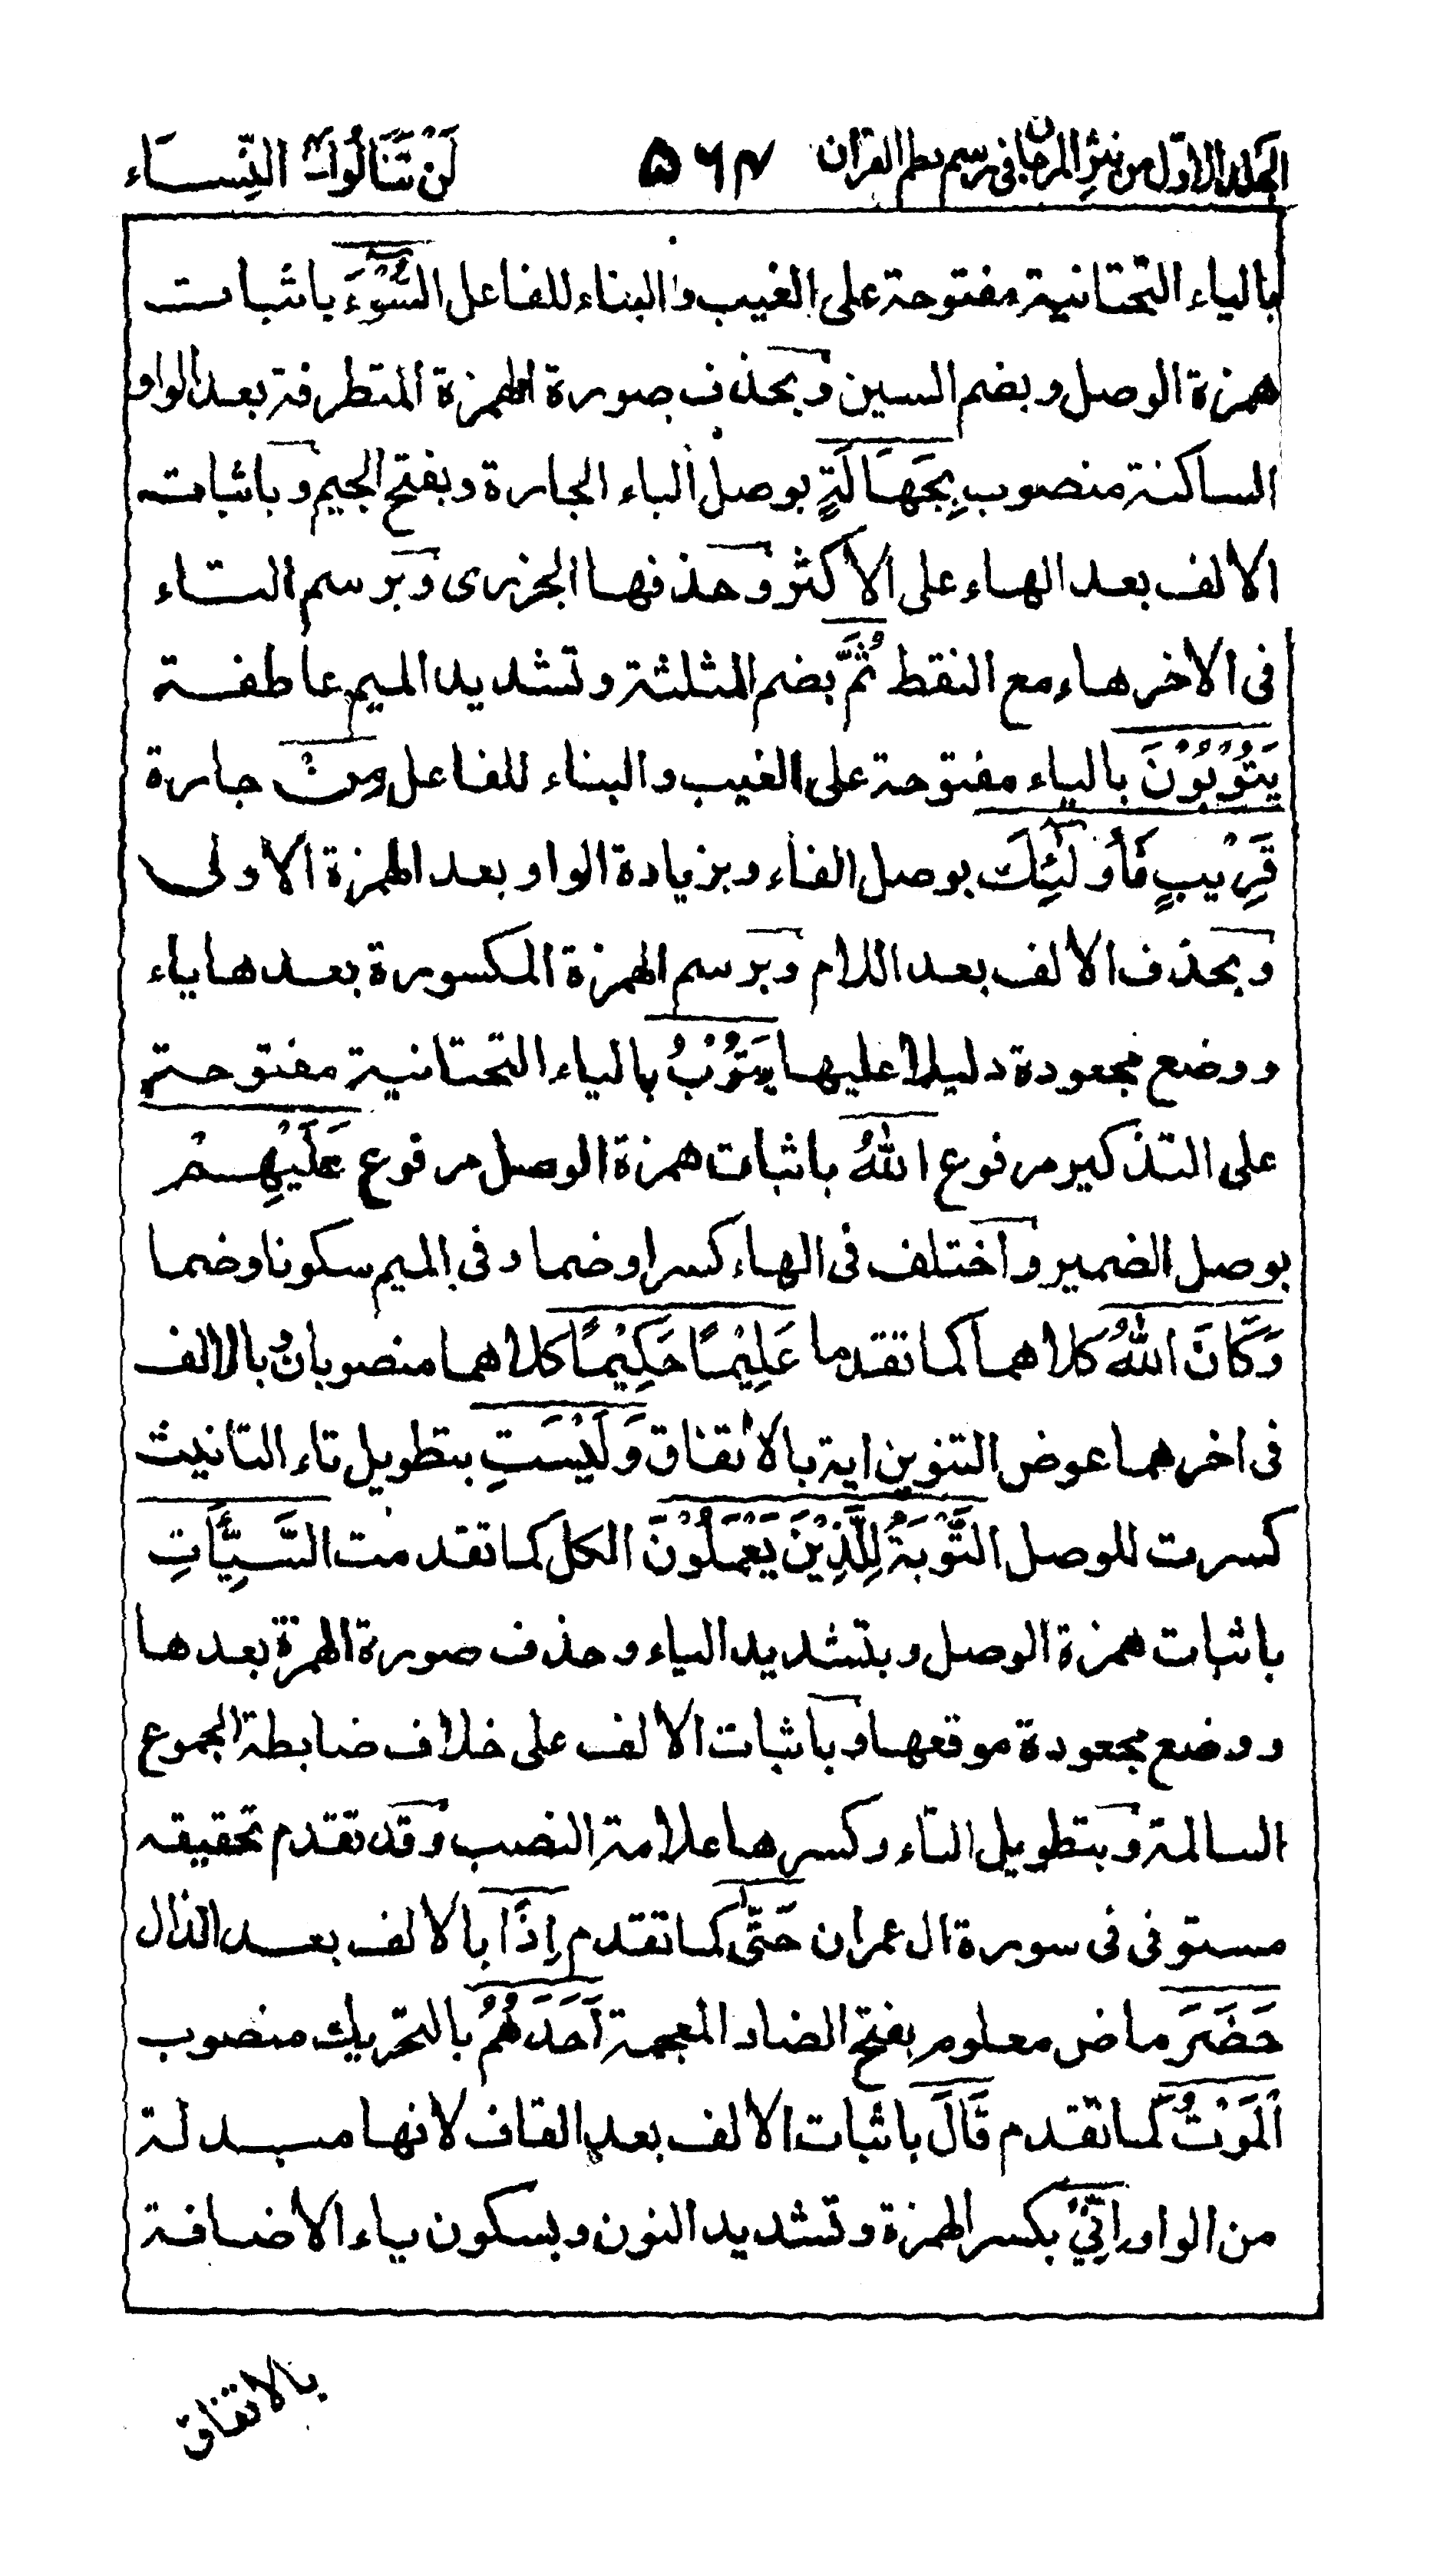 الجلد الاول من نثر المرجان في رسم نظم القران ۵۶۴ لَنْ تَنَالُوا النِّسَاء
بالياء التحتانية مفتوحة على الغيب والبناء للفاعل السُّوْٓءَ باثبات
همزة الوصل وبضم السين وبحذف صورة الهمزة المتطرفة بعد الواو
الساكنة منصوب بِجَهَالَةٍ بوصل الباء الجارة وبفتح الجيم وباثبات
الالف بعد الهاء على الاكثر وحذفها الجزرى وبرسم التاء
فى الاخر هاء مع النقط ثُمَّ بضم المثلثة وتشديد الميم عاطفة
يَتُوْبُوْنَ بالياء مفتوحة على الغيب والبناء للفاعل مِنْ جارة
قَرِيْبٍ فَأُولٰٓئِكَ بوصل الفاء وبزيادة الواو بعد الهمزة الاولى
وبحذف الالف بعد اللام وبرسم الهمزة المكسورة بعدها ياء
ووضع مجعودة دليلا عليها يَتُوْبُ بالياء التحتانية مفتوحة
على التذكير مرفوع اللهُ باثبات همزة الوصل مرفوع عَلَيْهِمْ
بوصل الضمير واختلف فى الهاء كسرا وضما وفى الميم سكونا وضما
وَكَانَ اللهُ كلاهما كما تقدما عَلِيْمًا حَكِيْمًا كلاهما منصوبان وبالالف
فى اخرهما عوض التنوين اية بالاتفاق وَلَيْسَتِ بتطويل تاء التانيث
كسرت للوصل التَّوْبَةُ لِلَّذِيْنَ يَعْمَلُوْنَ الكل كما تقدمت السَّيِّأَتِ
باثبات همزة الوصل وبتشديد الياء وحذف صورة الهمزة بعدها
ووضع مجعودة موقعها وباثبات الالف على خلاف ضابطة الجموع
السالمة وبتطويل التاء وكسرها علامة النصب وقد تقدم تحقيقه
مستوفى فى سورة ال عمران حَتّٰى كما تقدم اِذَا بالالف بعد الذال
حَضَرَ ماض معلوم بفتح الضاد المعجمة اَحَدَهُمُ بالتحريك منصوب
الْمَوْتُ كما تقدم قَالَ باثبات الالف بعد القاف لانها مبدلة
من الواو اِنِّيْ بكسر الهمزة وتشديد النون وبسكون ياء الاضافة
بالاتفاق